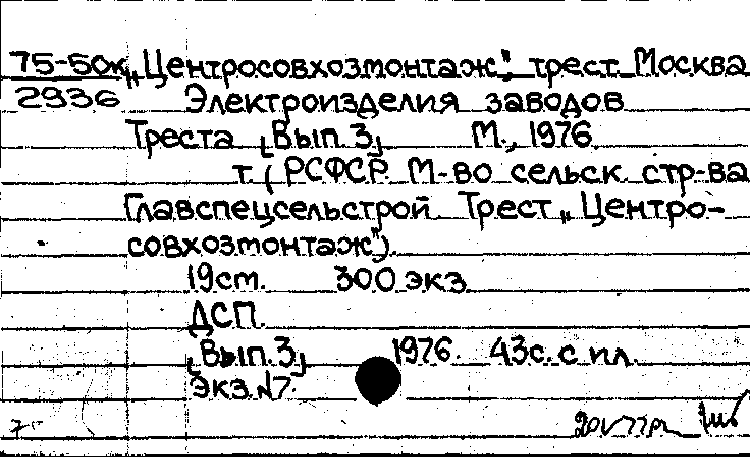 75-50к „Центросовхозмонтаж", трест. Москва
2936 Электроизделия заводов
Треста [Вып. 3] М., 1976.
т. (РСФСР. М-во сельск. стр-ва
Главспецсельстрой Трест „Центро-
совхозмонтаж")
19см. 300 экз.
ДСП.
[Вып. 3] 1976. 43с. с ил.
Экз. №7.
7